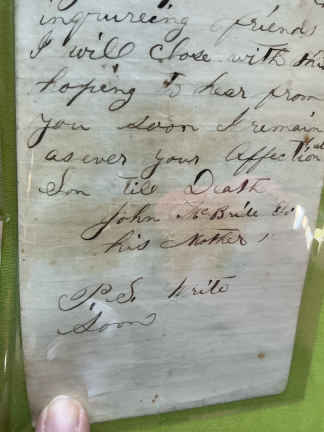 inquireing friends
I will Close with this
hoping to hear from
you soon I remain
as ever your Affectional
Son til Death
John McBrite to
his Mother
P.S. Write
Soon